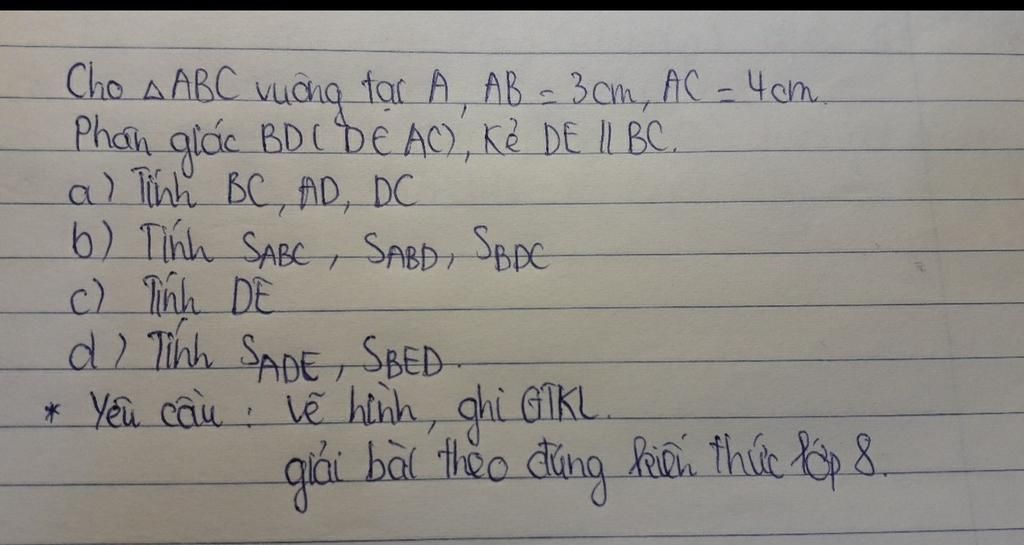 Cho △ABC vuông tại A, AB = 3cm, AC = 4cm.
Phân giác BD( D∈ AC), Kẻ DE // BC.
a) Tính BC, AD, DC
b) Tính SABC, SABD, SBDC
c) Tính DE
d) Tính SADE, SBED.
* Yêu cầu: Vẽ hình, ghi GTKL.
giải bài theo đúng kiến thức lớp 8.